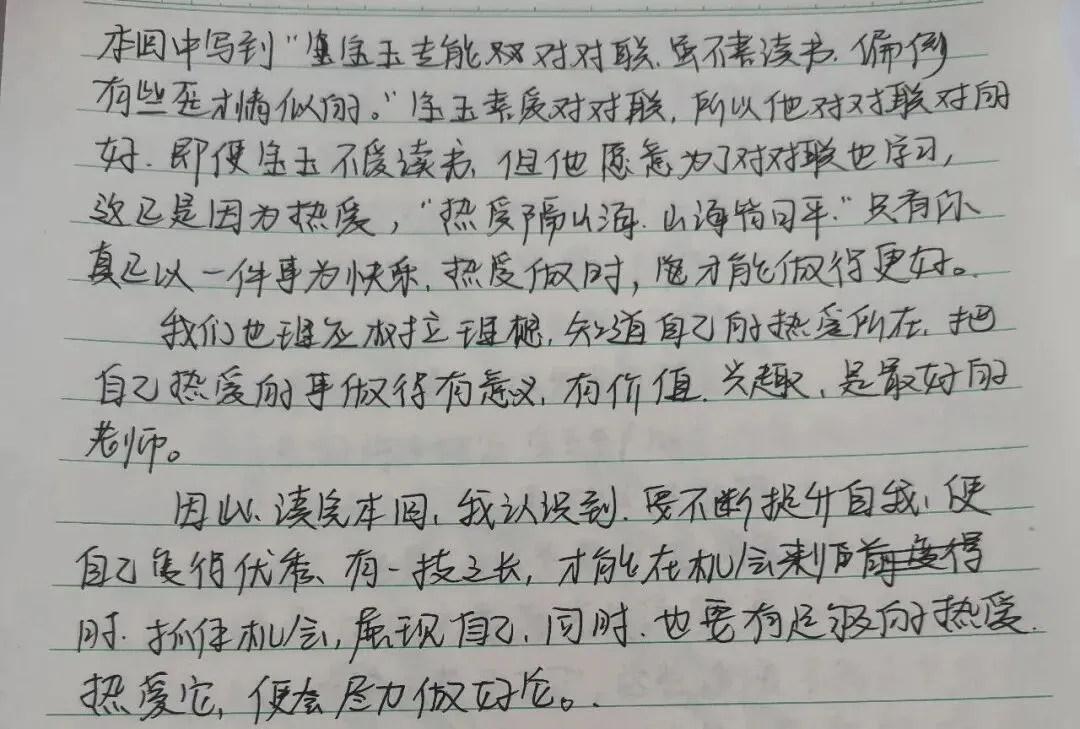 本回中写到“宝玉专能对对联,虽不喜读书,偏倒
有些歪才情似的。”宝玉喜爱对对联,所以他对对联对的
好。即便宝玉不爱读书,但他愿意为了对对联也学习,
这正是因为热爱,“热爱隔山海,山海皆可平。”只有你
真正以一件事为快乐,热爱做时,才能做得更好。
我们也理应树立理想,知道自己的热爱所在,把
自己热爱的事做得有意义,有价值。兴趣,是最好的
老师。
因此,读完本回,我认识到,要不断提升自我,使
自己变得优秀、有一技之长,才能在机会来临
时,抓住机会,展现自己,同时,也要有足够的热爱,
热爱它,便会尽力做好它。